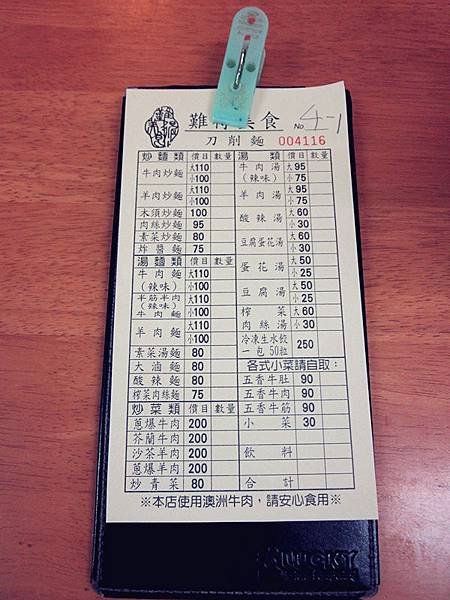 難得美食
No 4-1
刀削麵 004116
炒麵類 價目 數量
牛肉炒麵 大110 小100
羊肉炒麵 大110 小100
木須炒麵 100
肉絲炒麵 95
素菜炒麵 80
炸醬麵 75
湯麵類 價目 數量
牛肉麵(辣味) 大110 小100
半筋半肉(辣味)牛肉麵 大110 小100
羊肉麵 大110 小100
素菜湯麵 80
大滷麵 80
酸辣麵 80
榨菜肉絲麵 75
炒菜類 價目 數量
蔥爆牛肉 200
芥蘭牛肉 200
沙茶羊肉 200
蔥爆羊肉 200
炒青菜 80
湯類 價目 數量
牛肉湯(辣味) 大95 小75
羊肉湯 大95 小75
酸辣湯 大60 小30
豆腐蛋花湯 大60 小30
蛋花湯 大50 小25
豆腐湯 大50 小25
榨菜肉絲湯 大60 小30
冷凍生水餃一包50粒 250
各式小菜請自取：
五香牛肚 90
五香牛肉 90
五香牛筋 90
小菜 30
飲料
合計
※本店使用澳洲牛肉，請安心食用※
LUCKY